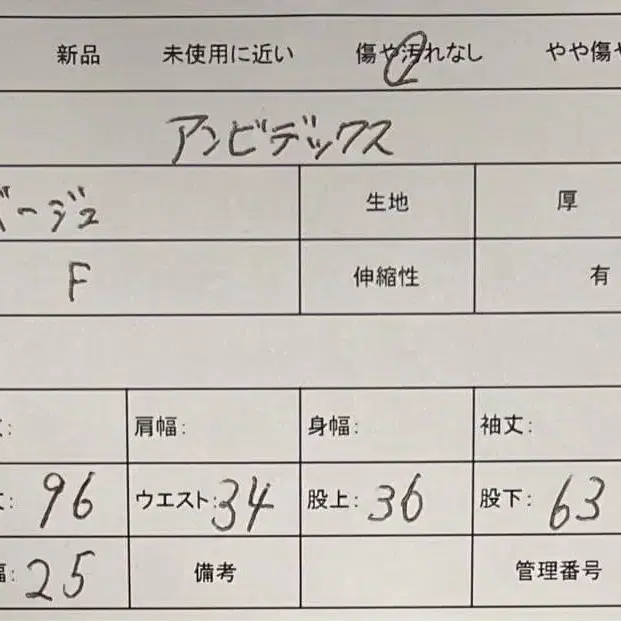 新品 未使用に近い 傷や汚れなし やや傷や
アンビデックス
ベージュ 生地 厚
F 伸縮性 有
: 肩幅: 身幅: 袖丈:
: 96 ウエスト: 34 股上: 36 股下: 63
幅: 25 備考 管理番号